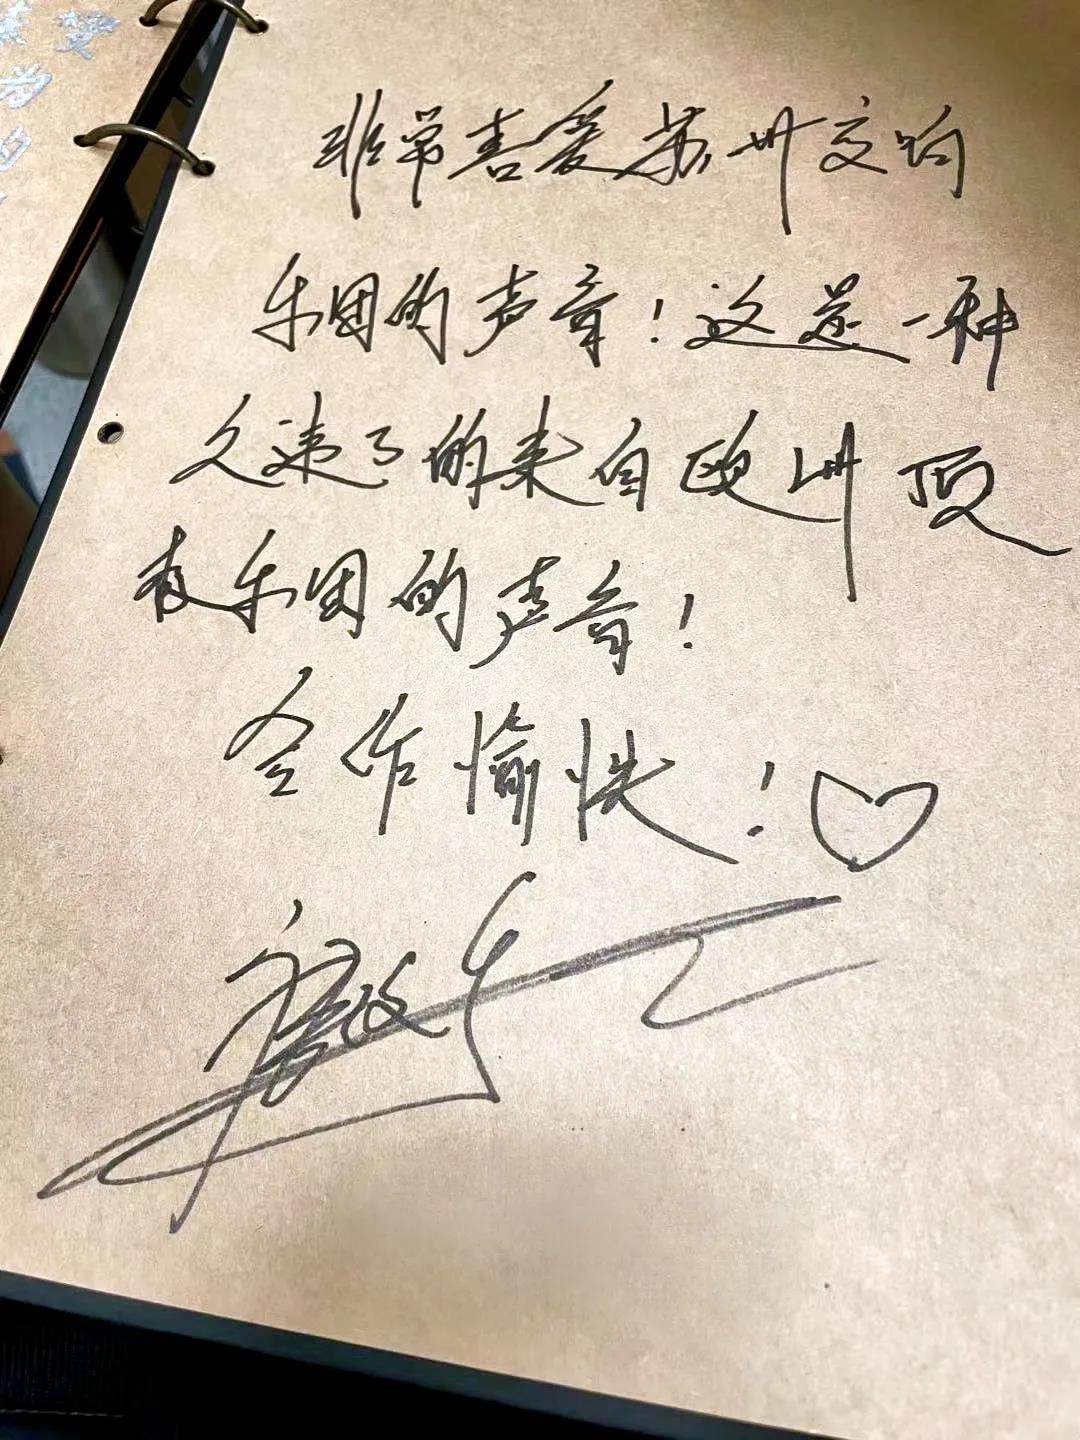 非常喜爱苏州交响
乐团的声音！这是一种
久违了的来自欧洲顶
春乐团的声音！
合作愉快！